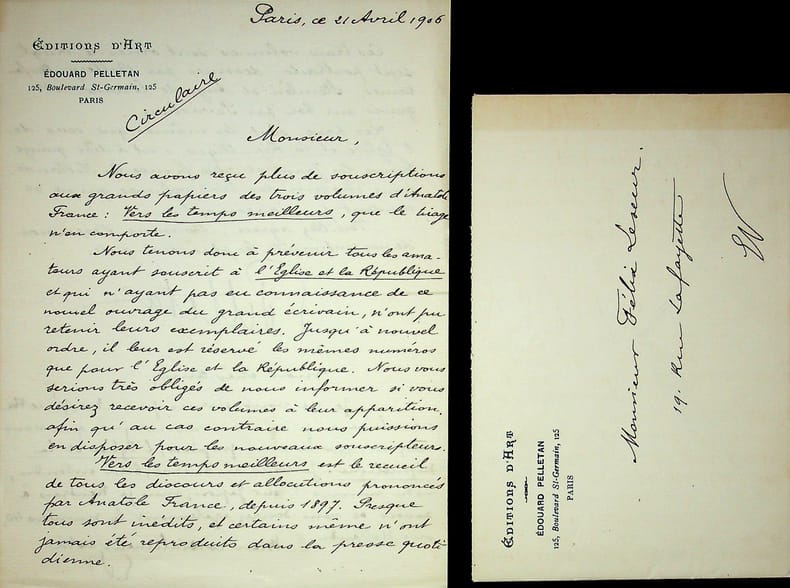 Paris, ce 21 Avril 1906
ÉDITIONS D'ART
ÉDOUARD PELLETAN
125, Boulevard St-Germain, 125
PARIS
Circulaire
Monsieur,
Nous avons reçu plus de souscriptions
aux grands papiers des trois volumes d'Anatole
France : Vers les temps meilleurs, que le tirage
n'en comporte.
Nous tenons donc à prévenir tous les ama-
teurs ayant souscrit à l'Eglise et la République
et qui n'ayant pas eu connaissance de ce
nouvel ouvrage du grand écrivain, n'ont pu
retenir leurs exemplaires. Jusqu'à nouvel
ordre, il leur est réservé les mêmes numéros
que pour l'Eglise et la République. Nous vous
serions très obligés de nous informer si vous
désirez recevoir ces volumes à leur apparition,
afin qu'au cas contraire nous puissions
en disposer pour les nouveaux souscripteurs.
Vers les temps meilleurs est le recueil
de tous les discours et allocutions prononcés
par Anatole France, depuis 1897. Presque
tous sont inédits, et certains même n'ont
jamais été reproduits dans la presse quoti
dienne.
Monsieur Félix Leseur.
19. Rue Lafayette
EV
ÉDITIONS D'ART
ÉDOUARD PELLETAN
125, Boulevard St-Germain, 125
PARIS